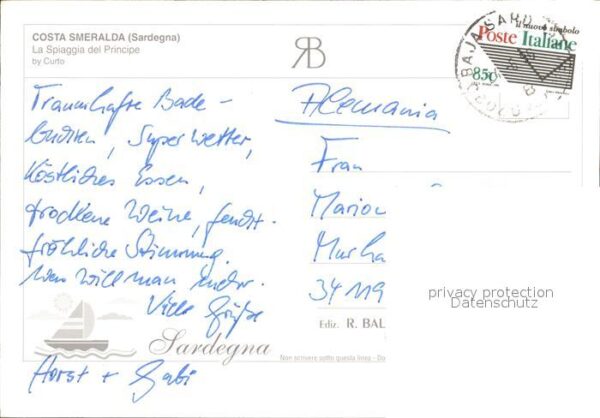 COSTA SMERALDA (Sardegna)
La Spiaggia del Principe
by Curto
RB
il nuovo simbolo
Poste Italiane
850
BAJA SARD
Traumhafte Bade-
buchten, Superwetter,
köstliches Essen,
trockene Weine, feucht-
fröhliche Stimmung.
Was will man mehr.
Viele Grüße
Horst + Gabi
Alemania
Frau
Marion
Murha
34119
privacy protection
Datenschutz
Ediz. R. BAL
Sardegna
Non scrivere sotto questa linea - Do